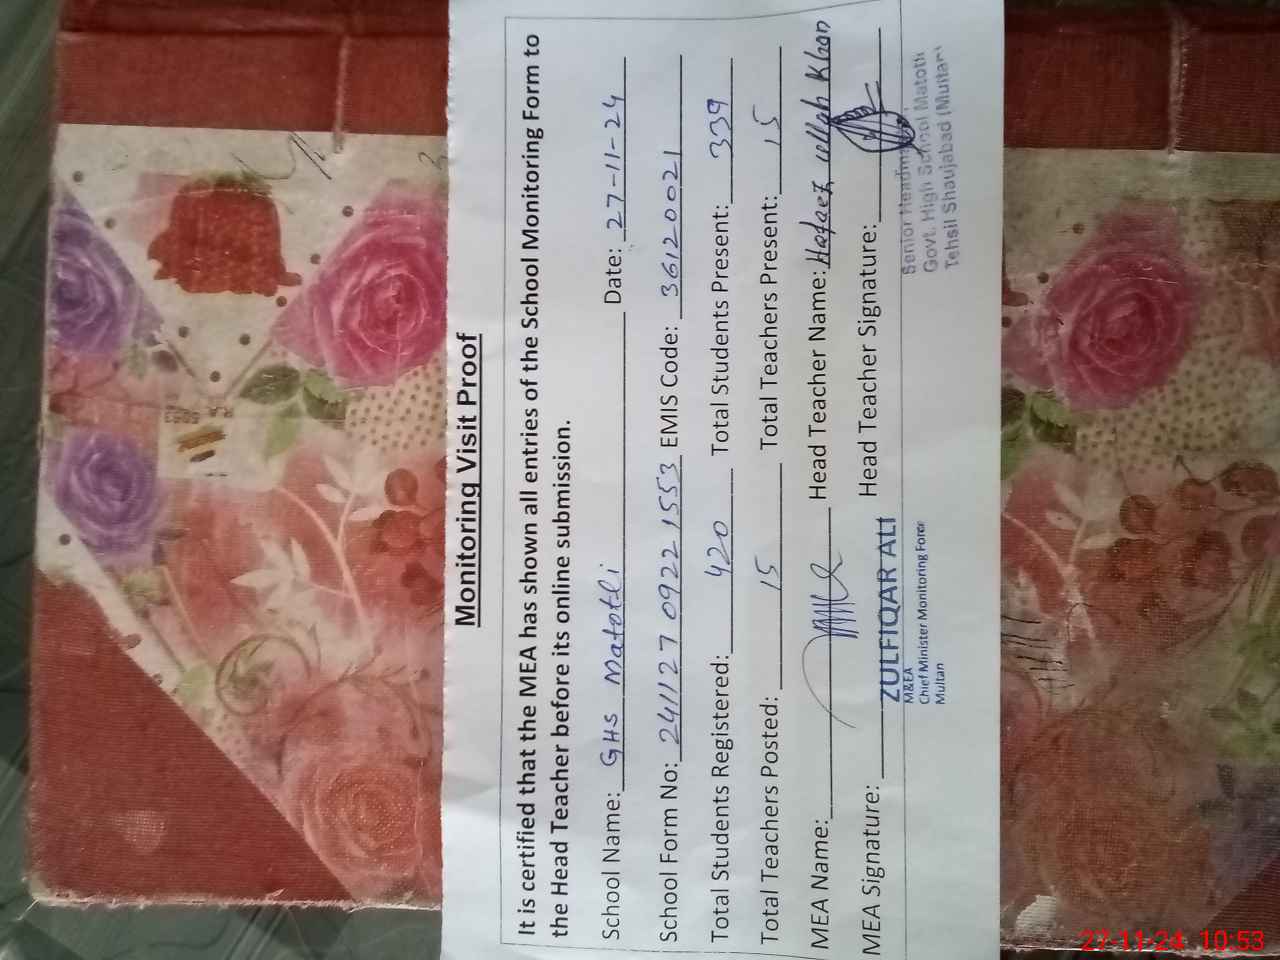 Monitoring Visit Proof
It is certified that the MEA has shown all entries of the School Monitoring Form to
the Head Teacher before its online submission.
School Name: GHS Matotli Date: 27-11-24
School Form No: 241127 0922 1553 EMIS Code: 36120021
Total Students Registered: 420 Total Students Present: 339
Total Teachers Posted: 15 Total Teachers Present: 15
MEA Name: Head Teacher Name: Hafeez ullah Khan
MEA Signature: Head Teacher Signature:
ZULFIQAR ALI
M&EA
Chief Minister Monitoring Force
Multan
Senior Headmaster
Govt. High School Matoth
Tehsil Shaujabad (Multan)
27-11-24 10:53